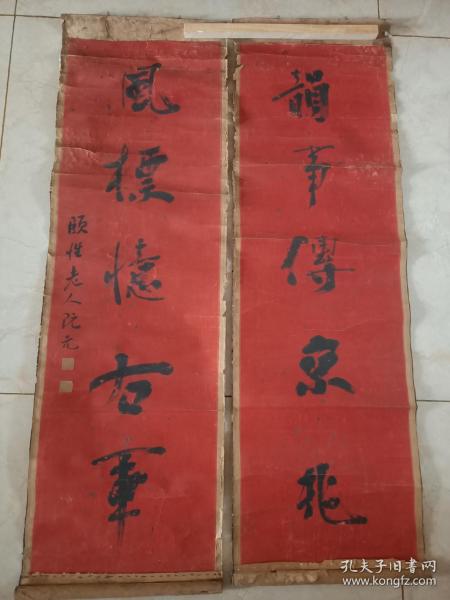 韻事傳京兆
風標憶右軍
頤性老人阮元
孔夫子旧书网
www.kongfz.com